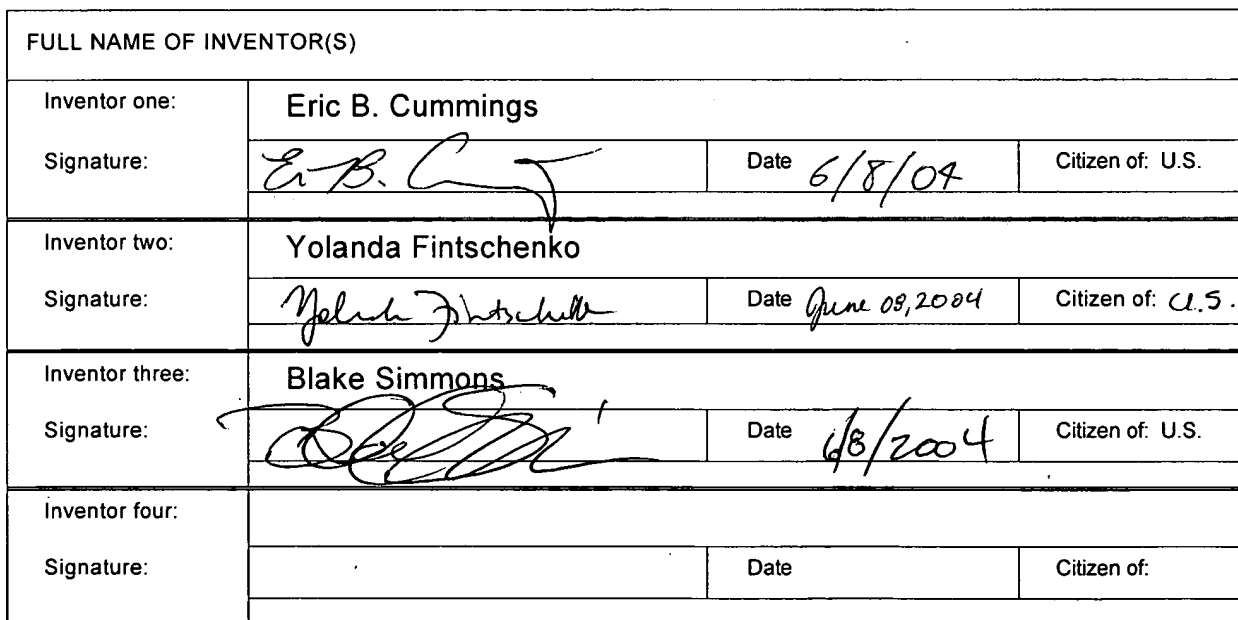 FULL NAME OF INVENTOR(S)
Inventor one: Eric B. Cummings
Signature: Date 6/8/04 Citizen of: U.S.
Inventor two: Yolanda Fintschenko
Signature: Date June 08, 2004 Citizen of: U.S.
Inventor three: Blake Simmons
Signature: Date 6/8/2004 Citizen of: U.S.
Inventor four:
Signature: Date Citizen of: